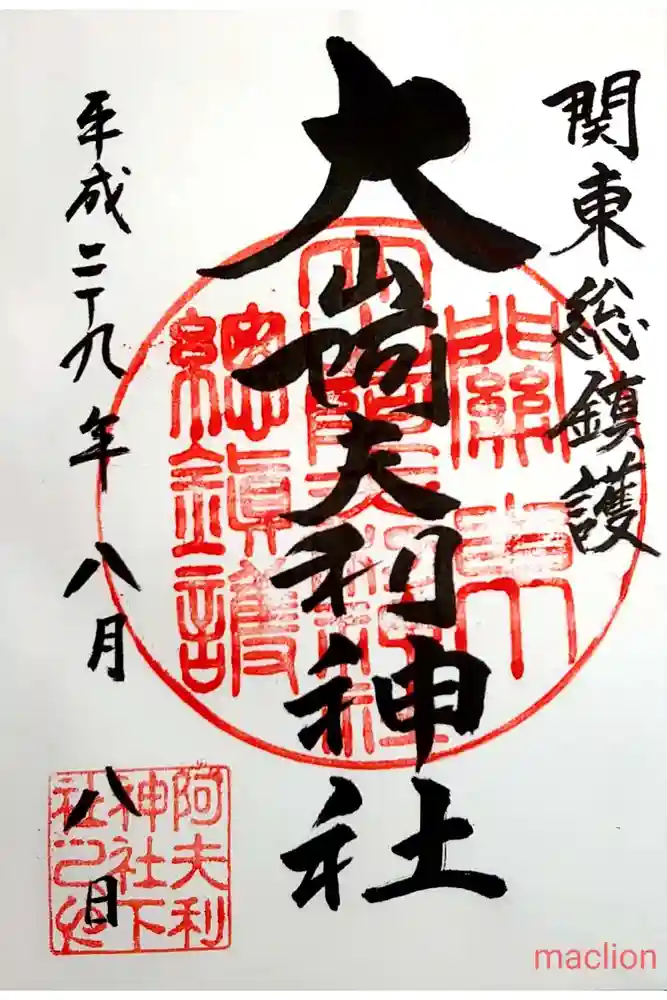 関東総鎮護
大山阿夫利神社
平成二十九年八月八日
關東
總鎮護
阿夫利
神社下
社之
maclion